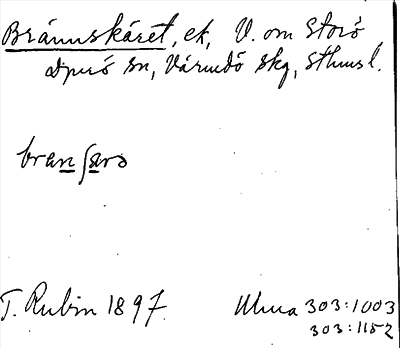 Brännskäret, ek, V. om Storö
Djurö sn, Värmdö skg, Sthmsl.
branʃæro
T. Rubin 1897.
Ulma 303:1003
303:1152